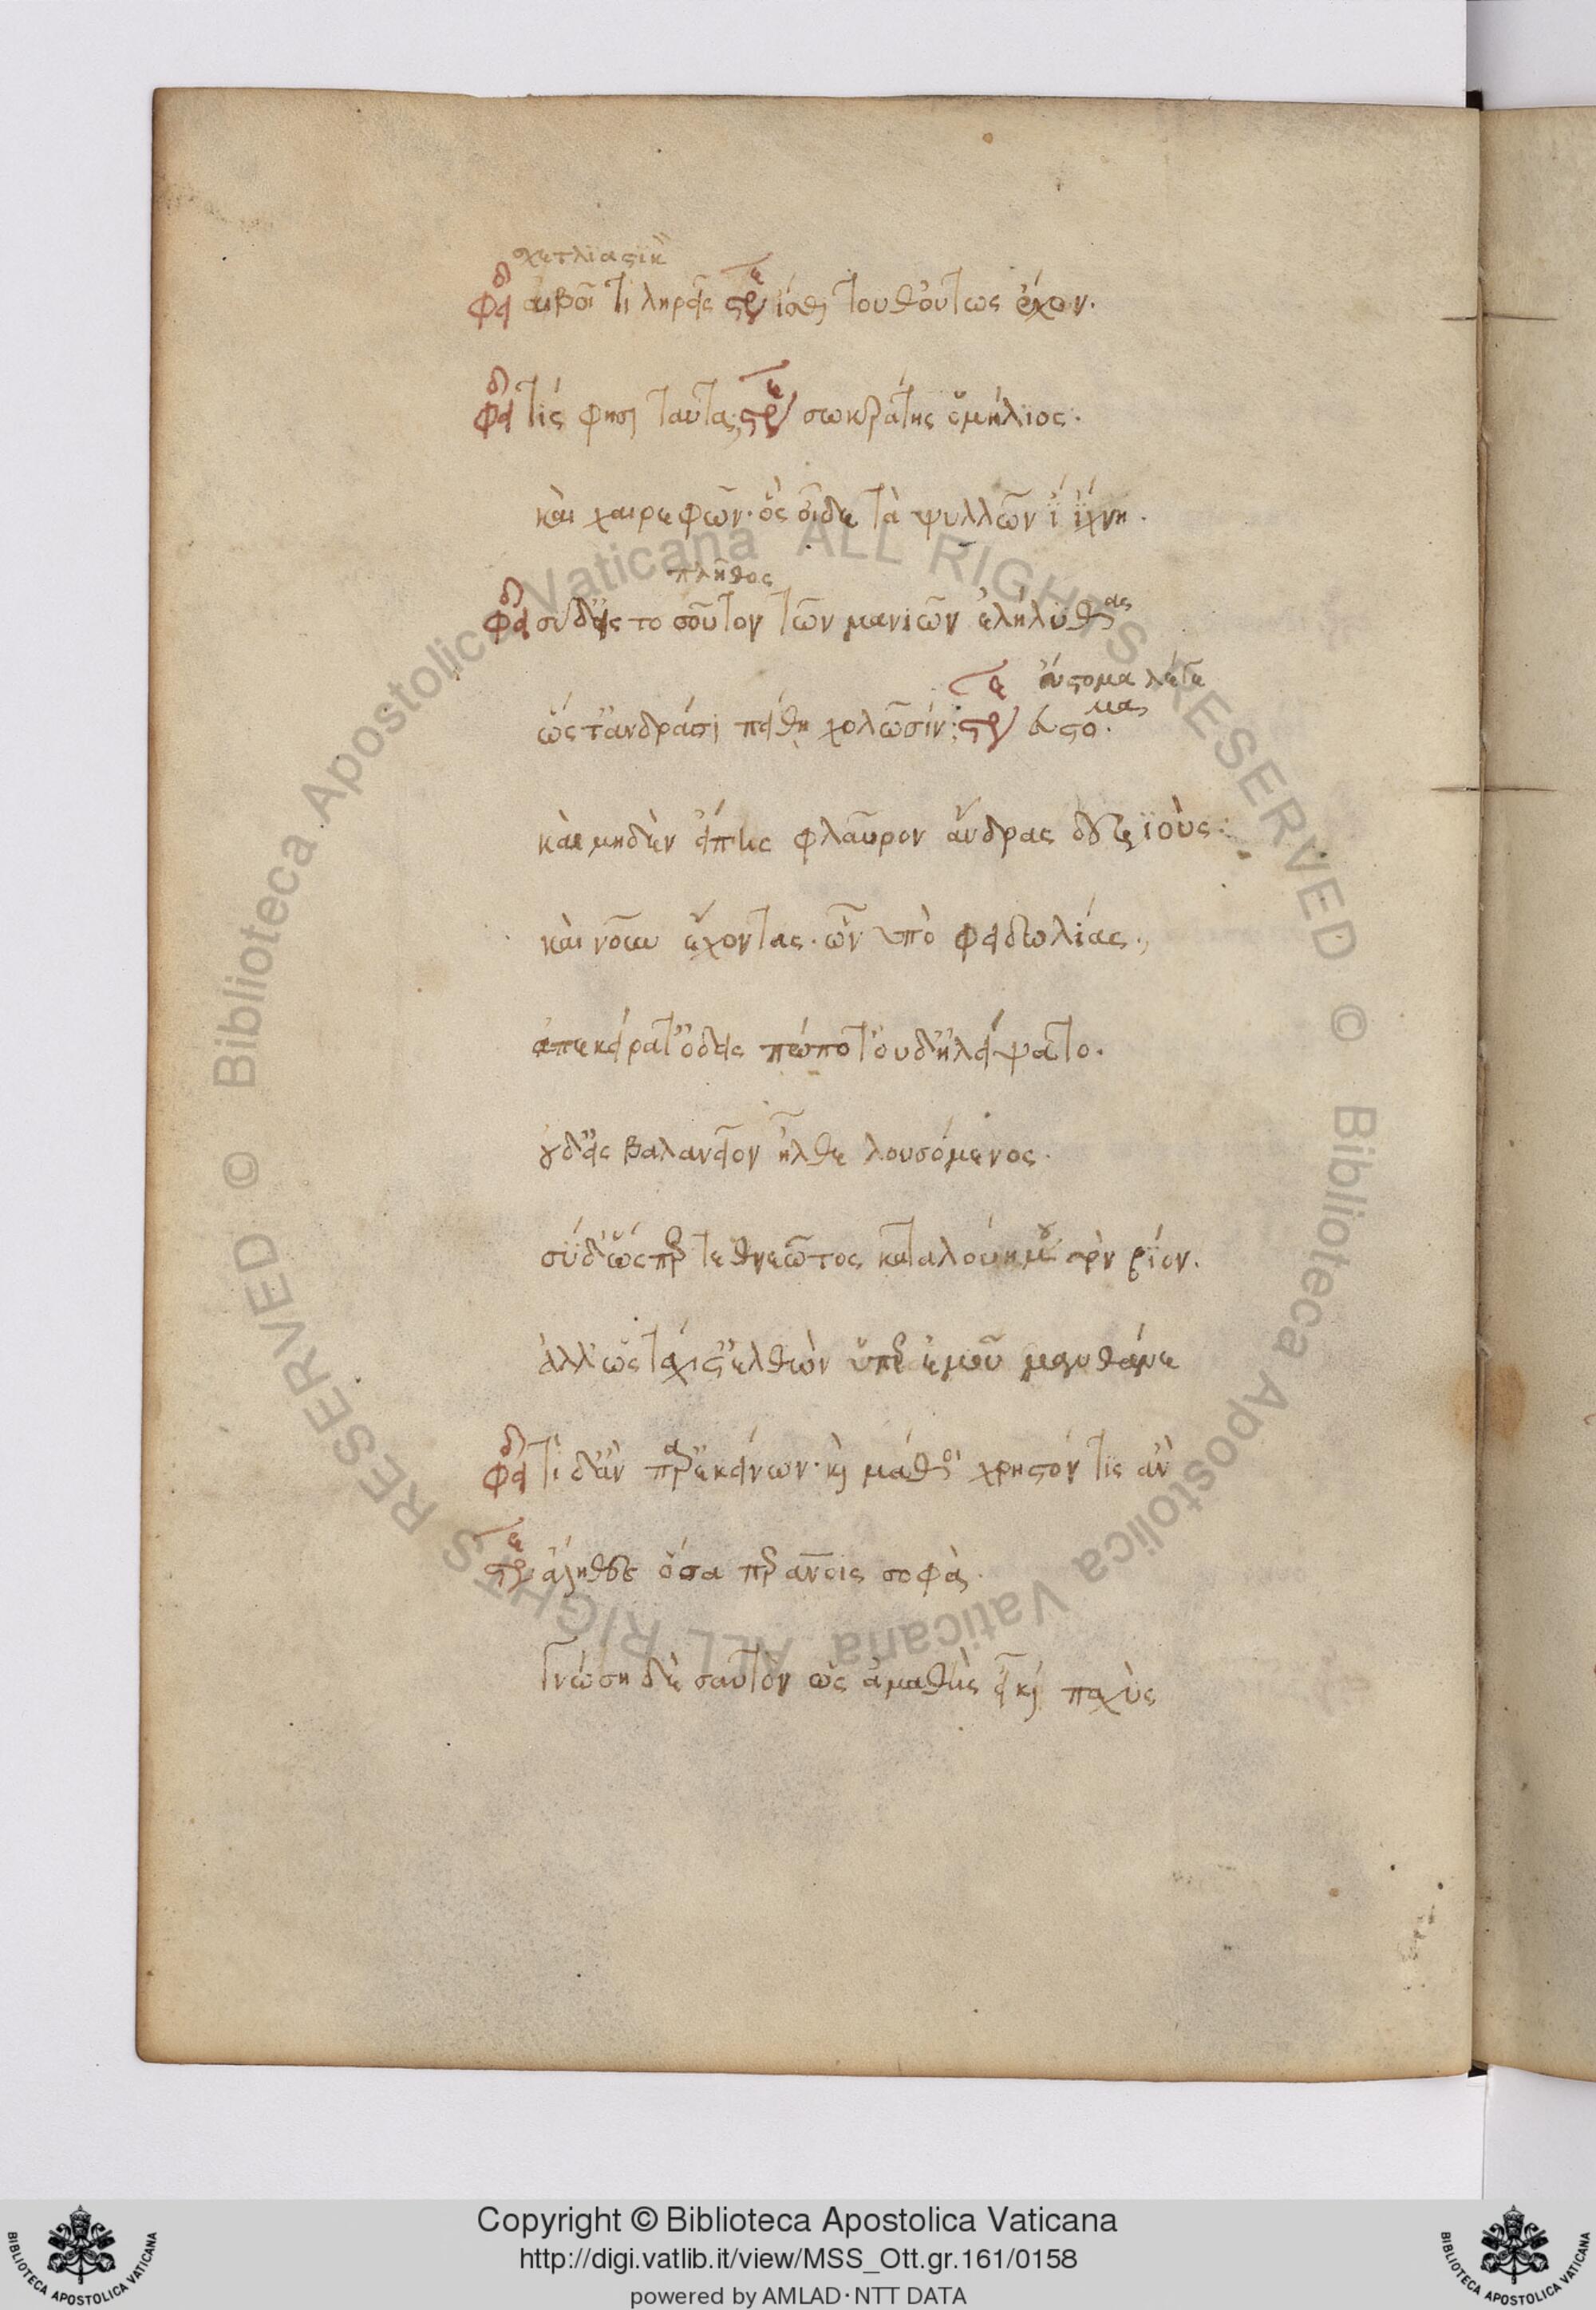 σχετλιαστικὸν
φειδ αἰβοῖ τί ληρεῖς στρε ἴσθι τοῦθ' οὕτως ἔχον.
φειδ τίς φησι ταῦτα; στρε σωκράτης ὁ μήλιος.
καὶ χαιρεφῶν· ὃς οἶδε τὰ ψυλλῶν ἴχνη.
πλῆθος
φειδ σὺ δ' εἰς τοσοῦτον τῶν μανιῶν ἐλήλυθας
εὔστομα λέγε
ὥστ' ἀνδράσι πείθῃ χολῶσιν; στρε εὐστόμει
καὶ μηδὲν εἴπῃς φλαῦρον ἄνδρας δεξιοὺς·
καὶ νοῦν ἔχοντας· ὧν ὑπὸ φειδωλίας.
ἀπεκείρατ' οὐδεὶς πώποτ' οὐδ' ἠλείψατο.
οὐδ' εἰς βαλανεῖον ἦλθε λουσόμενος.
σὺ δ' ὥσπερ τεθνεῶτος καταλούῃ μου τὸν βίον.
ἀλλ' ὡς τάχιστ' ἐλθὼν ὑπὲρ ἐμοῦ μάνθανε
φειδ τί δ' ἂν παρ' ἐκείνων· καὶ μάθοι χρηστόν τις ἂν
στρε ἄληθες ὅσα παρ ἀνοις σοφὰ.
γνώσῃ δὲ σαυτὸν ὡς ἀμαθὴς εἶ καὶ παχὺς
Copyright © Biblioteca Apostolica Vaticana
http://digi.vatlib.it/view/MSS_Ott.gr.161/0158
powered by AMLAD·NTT DATA